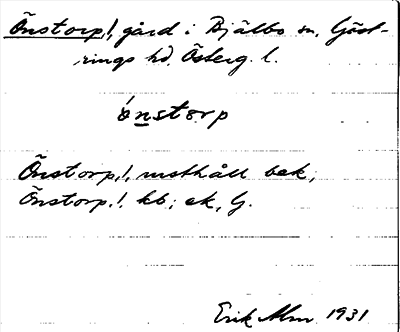 Önstorp,!, gård i Bjälbo sn, Göst-
rings hd, Österg. l.
ónstorp
Önstorp,!, rusthåll bek,
Önstorp,!, kb; ek, G.
Erik Alm 1931